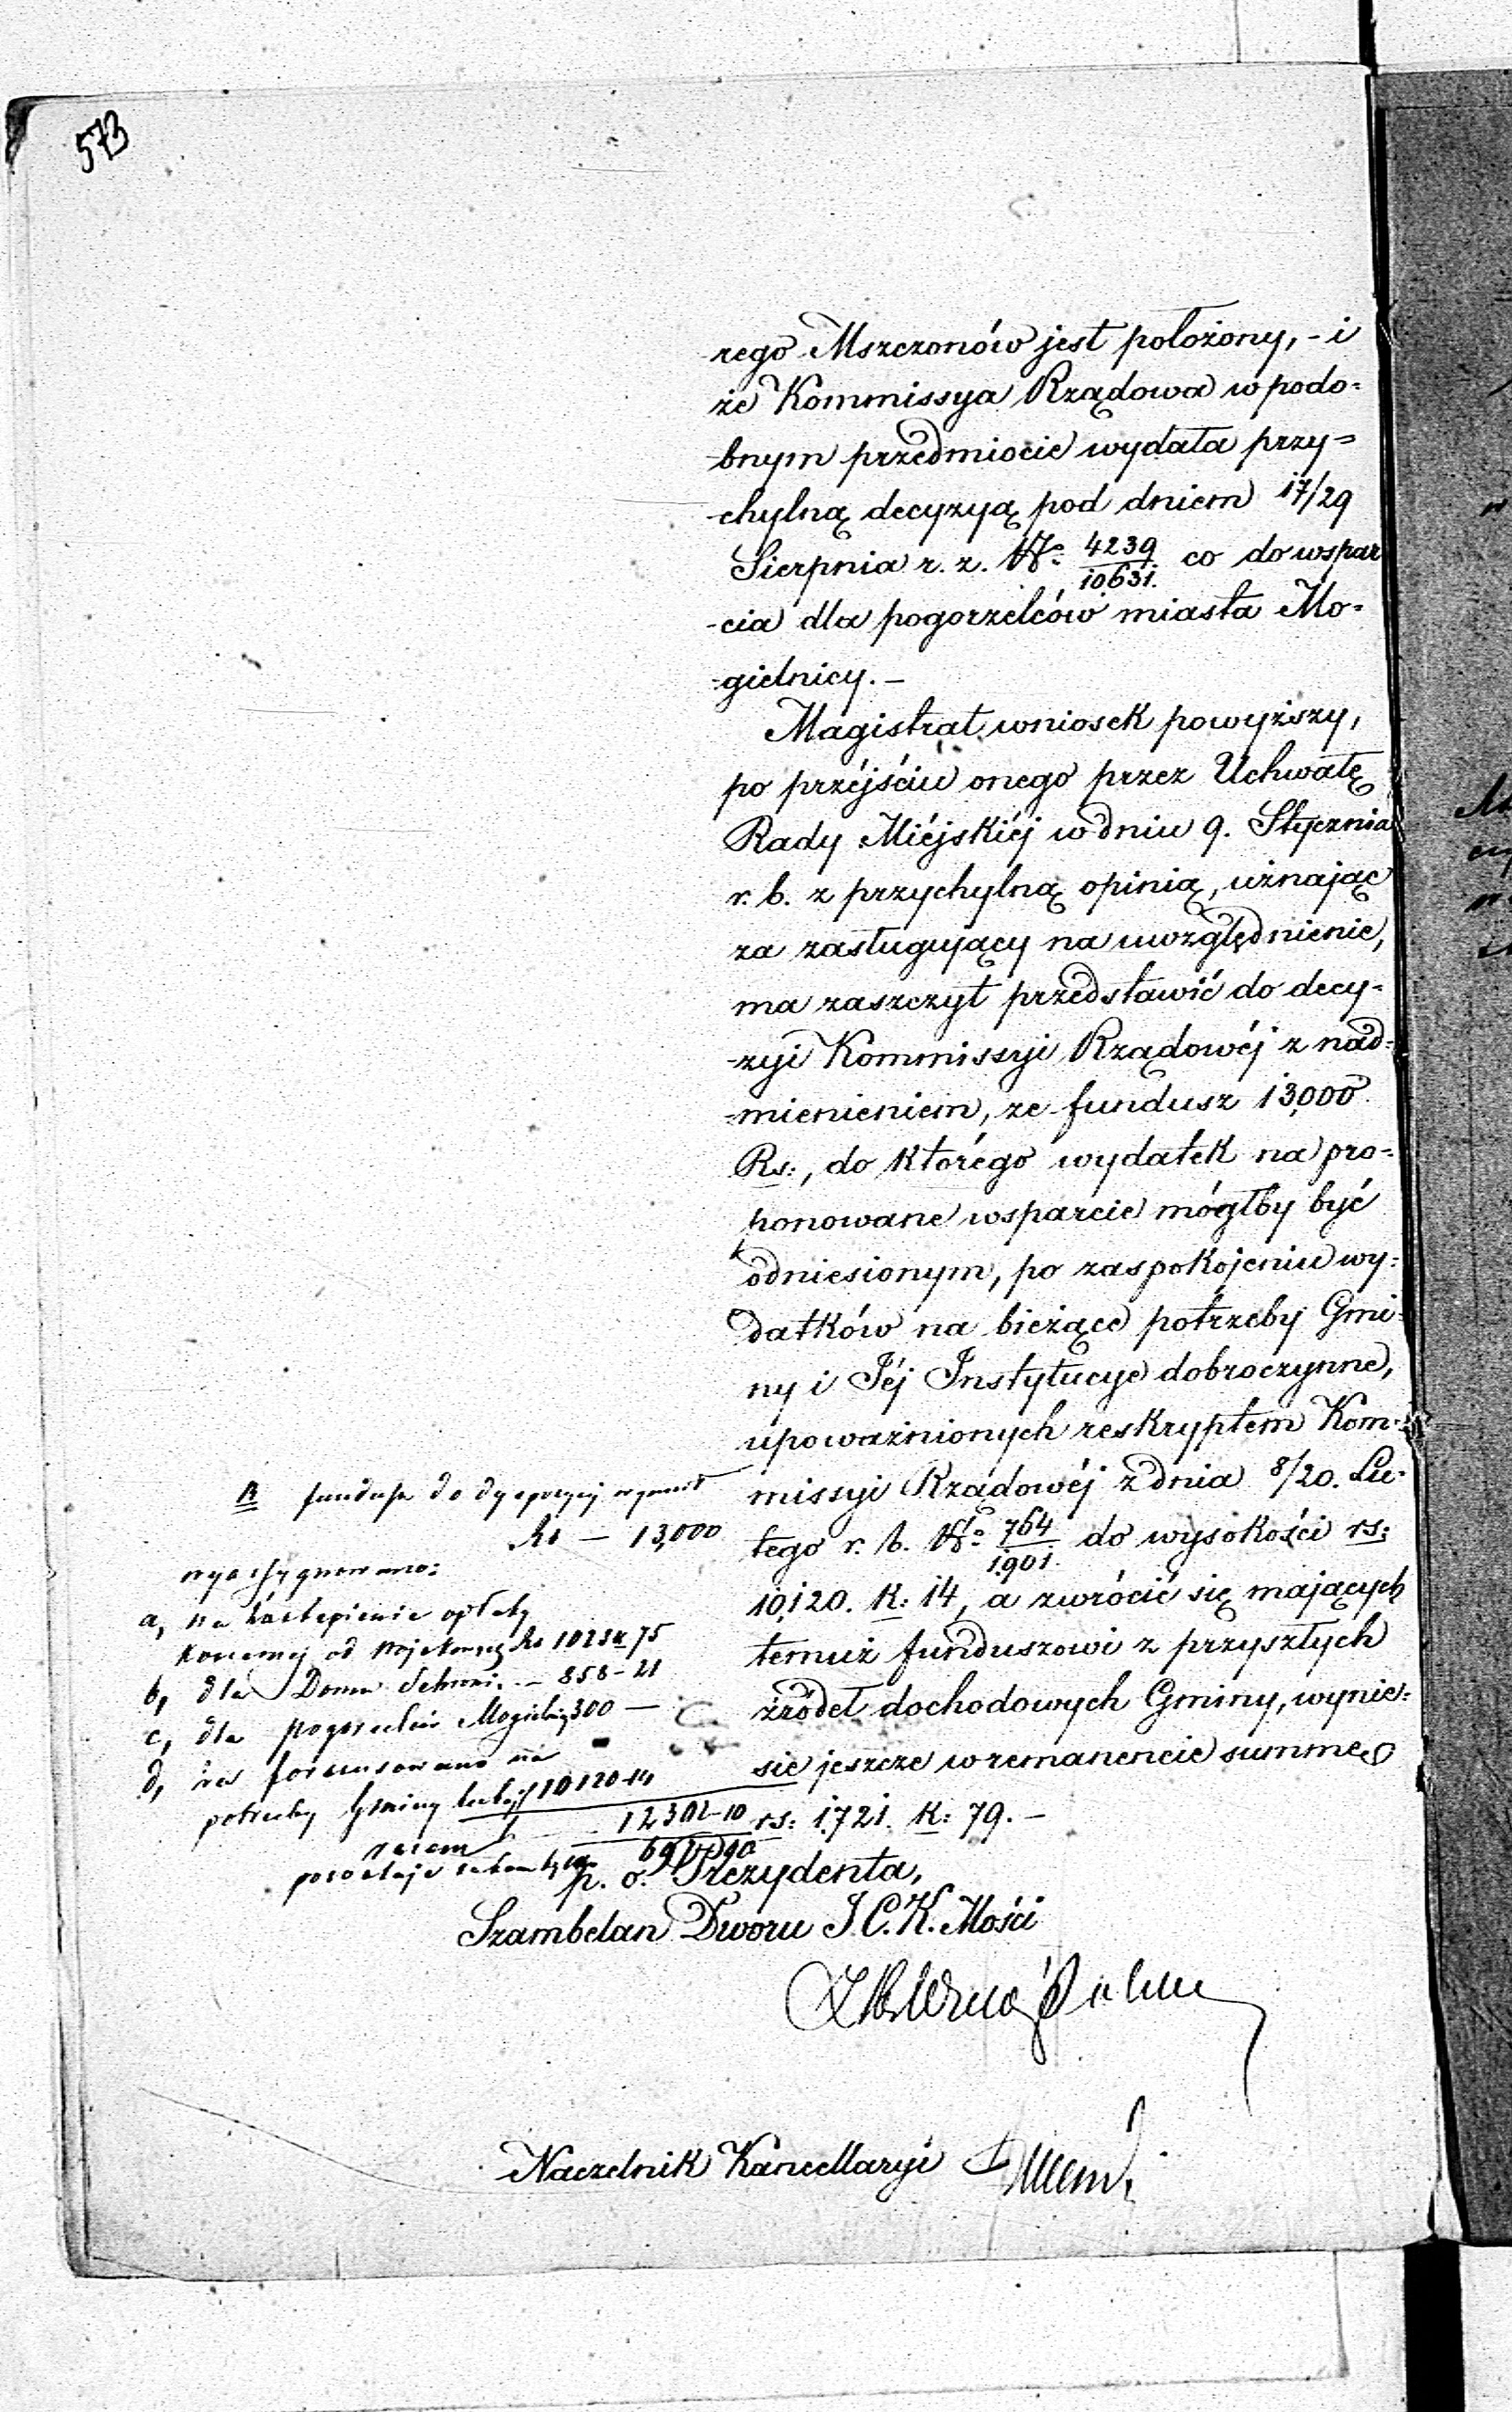 573
rego Mszczonów jest położony, - i
że Kommissya Rządowa w podo=
bnym przedmiocie wydała przy=
chylną decyzyą pod dniem 17/29
Sierpnia r. z. No: 4239/10631. co do wspar
-cia dla pogorzelców miasta Mo=
gielnicy. –
Magistrat wniosek powyższy,
po przejściu onego przez Uchwałę
Rady Miéjskiéj w dniu 9. Stycznia
r. b. z przychylną opinią, uznając
za zasługujący na uwzględnienie,
ma zaszczyt przedstawić do decy=
-zyi Kommissyi Rządowéj z nad=
-mienieniem, ze fundusz 13,000
Rs:, do którégo wydatek na pro=
ponowane wsparcie mógłby być
odniesionym, po zaspokojeniu wy=
datków na bieżące potrzeby Gmi=
ny i Jéj Instytucye dobroczynne,
upoważnionych reskryptem Kom=
missyi Rządowéj z dnia 8/20. Lu=
tego r. b. No: 764/1901. do wysokości rs:
10,120. K: 14, a zwrócić się mających
temuż funduszowi z przyszłych
źródeł dochodowych Gminy, wynie=
sie jeszcze w remanencie summę
rs: 1,721. K: 79. –
fundusz do dyspozycyj
Rs – 13,000
wyassygnowano:
a, na zastąpienie opłaty
od Rs 1023 75
b, dla Domu Schron. – 858-21
c, dla pogorzelców Mogielnicy 300 –
d, na
potrzeby Gminy 10120-14
razem 12302-10
pozostaje
p. o. Prezydenta,
Szambelan Dworu J. C. K. Mości
Naczelnik Kancellaryi